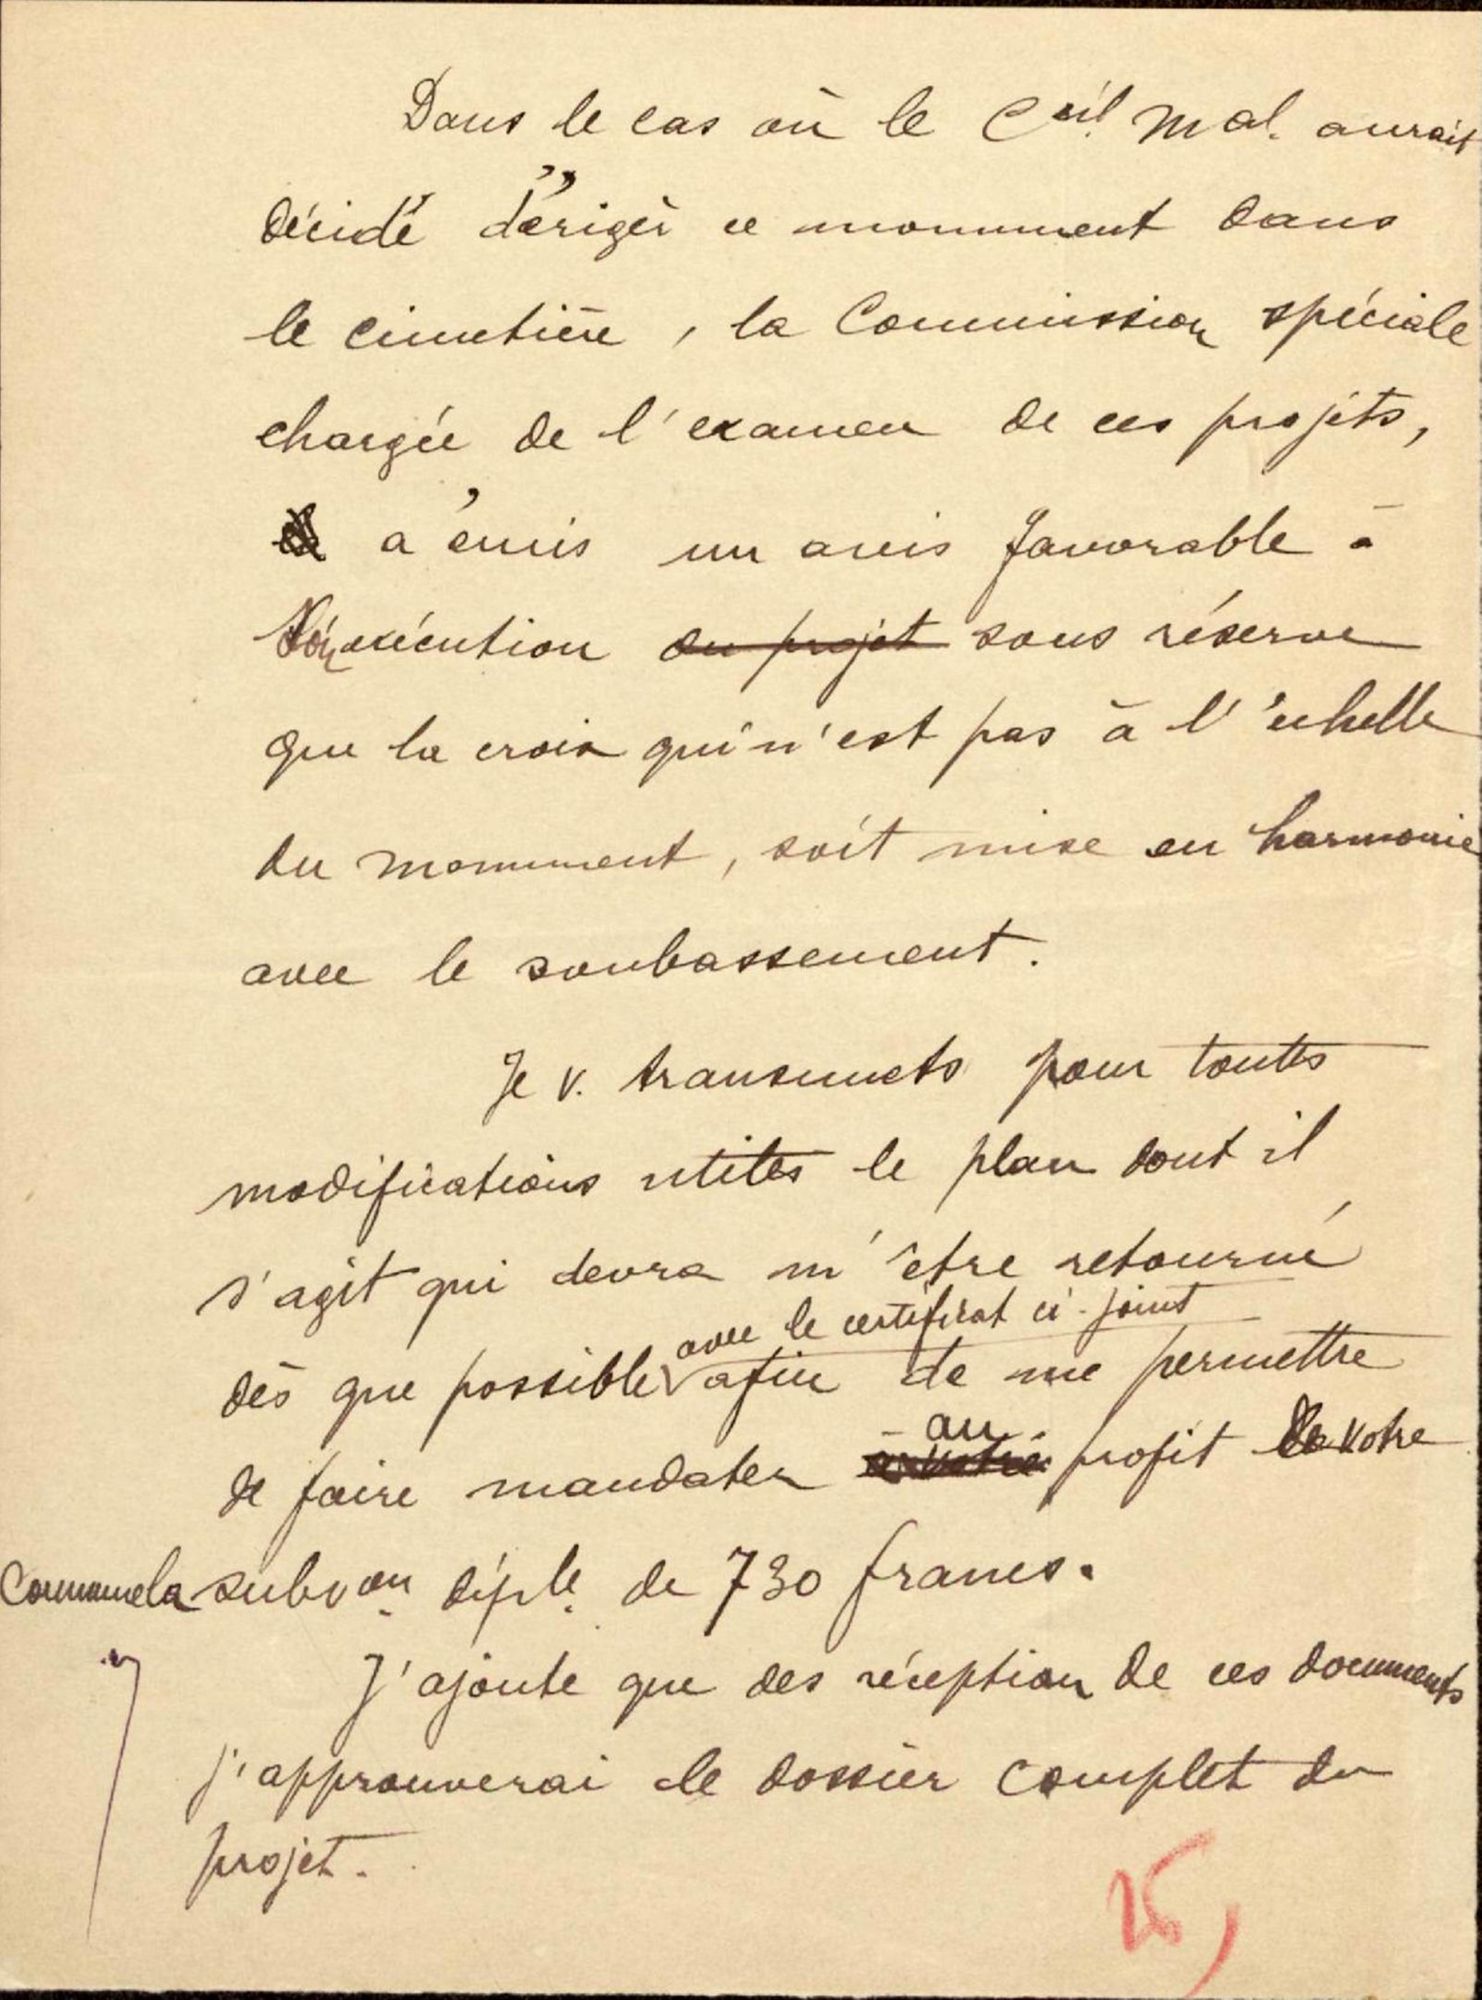 Dans le cas où le C^eil. Mal. aurait
décidé d'ériger ce monument dans
le cimetière, la Commission spéciale
chargée de l'examen de ces projets,
a émis un avis favorable à
son exécution du projet sous réserve
que la croix qui n'est pas à l'échelle
du monument, soit mise en harmonie
avec le soubassement.
Je v. transmets pour toutes
modifications utiles le plan dont il
s'agit qui devra m'être retourné
avec le certificat ci-joint
dès que possible afin de me permettre
au
de faire mandater à votre profit de votre
Commune la subv^on. dép^le. de 730 francs.
J'ajoute que dès réception de ces documents
j'approuverai le dossier complet du
projet.